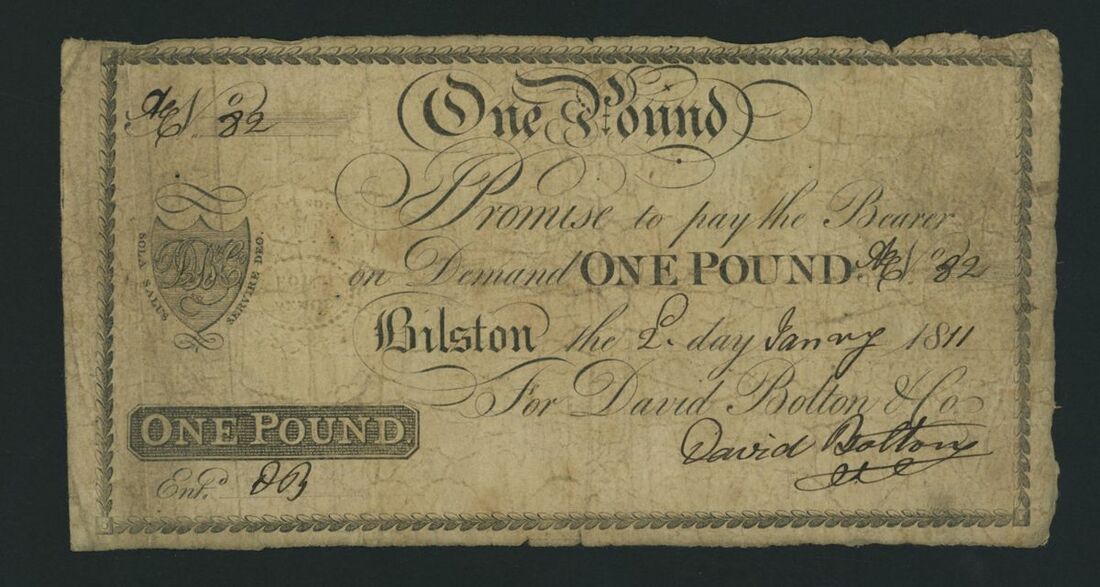 One Pound
No 82
I Promise to pay the Bearer
on Demand ONE POUND. No 82
DB&Co
SOLA SALUS SERVIRE DEO.
Bilston the 2d. day Janry 1811
For David Bolton & Co
ONE POUND
David Bolton
Entd. DB